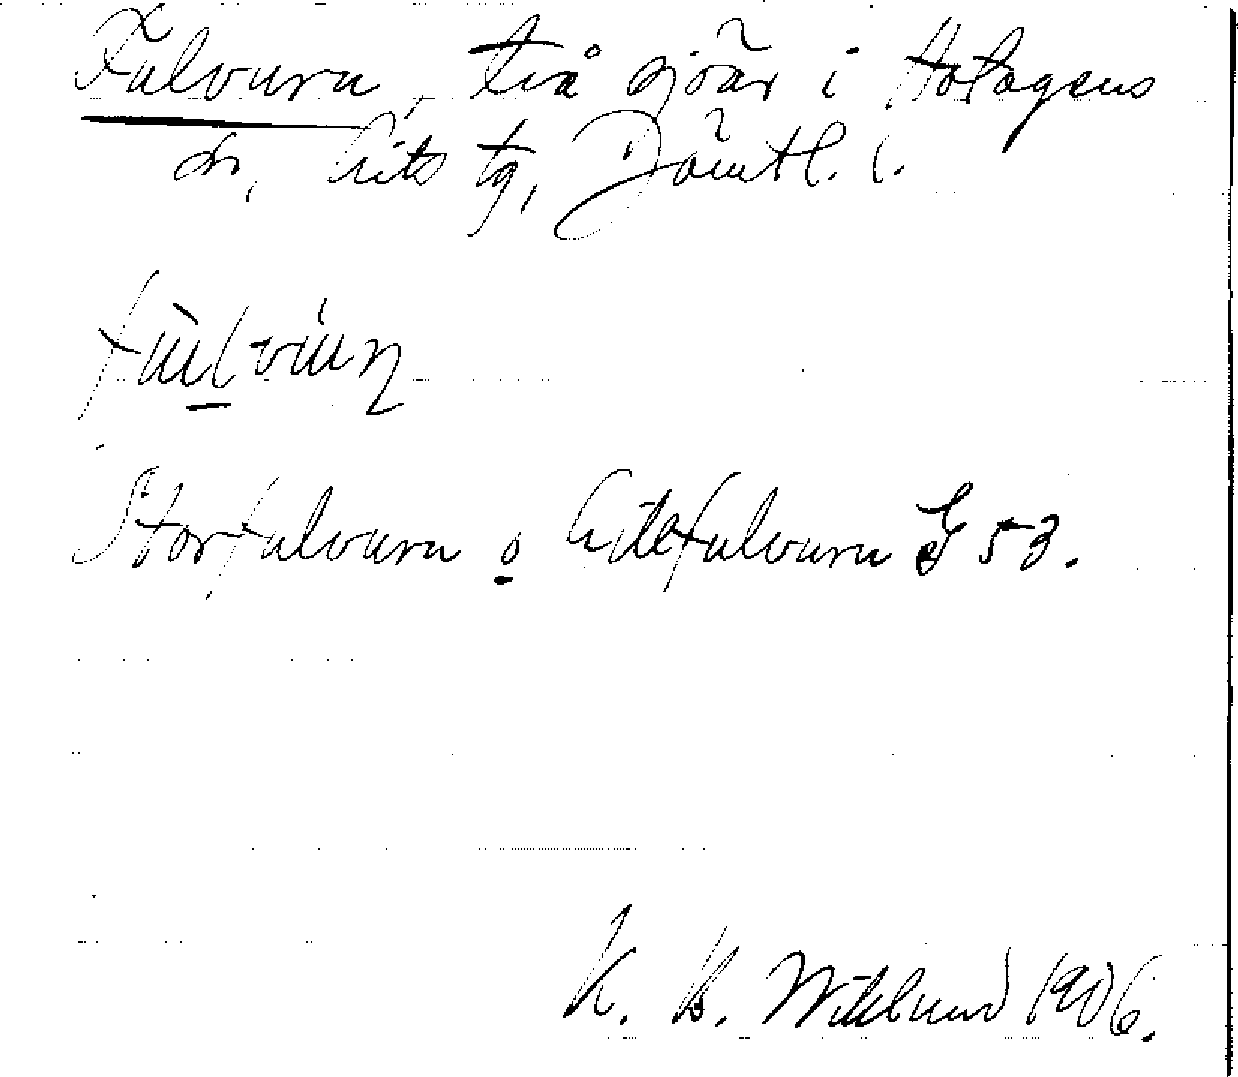 Fulvurn, två sjöar i Hotagens
sn, Lits tg, Jämtl. l.
Storfulvurn o Litlefulvurn G 53.
K. B. Wiklund 1906.